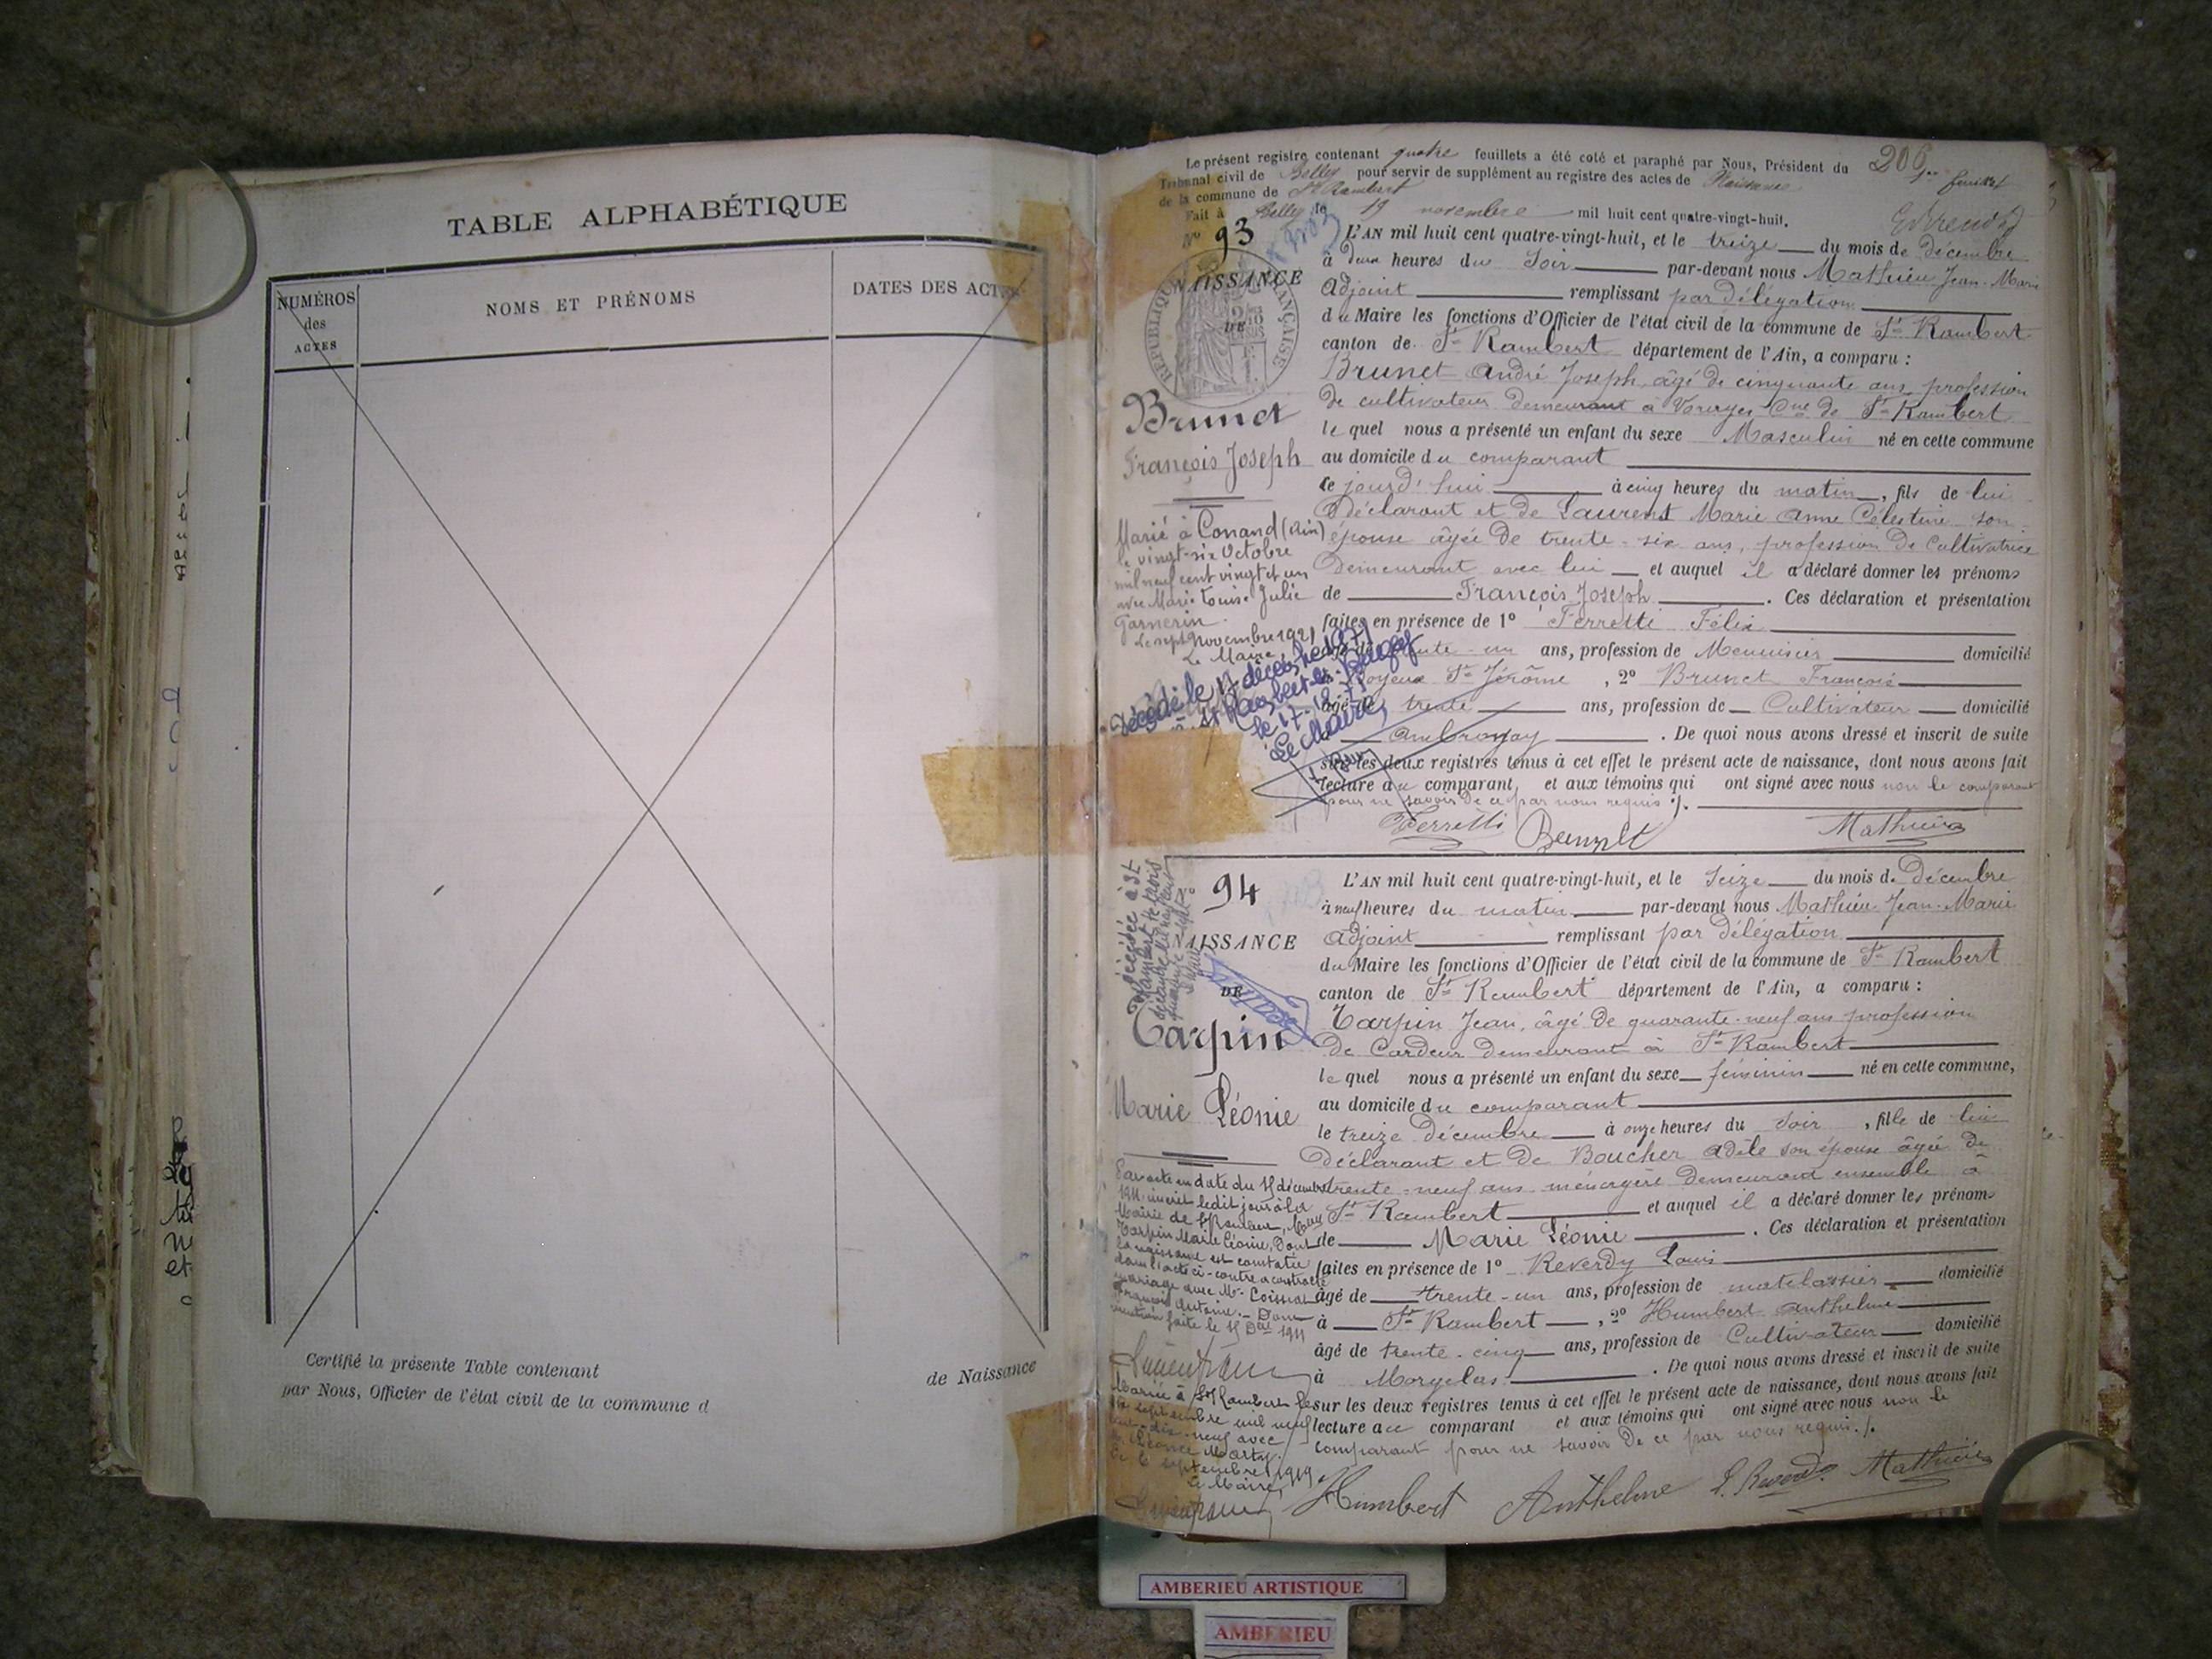 TABLE ALPHABÉTIQUE
NUMÉROS
des
ACTES
NOMS ET PRÉNOMS
DATES DES ACTES
Certifié la présente Table contenant de Naissance
par Nous, Officier de l'état civil de la commune d
Le présent registre contenant quatre feuillets a été coté et paraphé par Nous, Président du
Tribunal civil de Belley pour servir de supplément au registre des actes de Naissance
de la commune de St Rambert
Fait à Belley le 19 novembre mil huit cent quatre-vingt-huit.
206
feuillet
No 93
NAISSANCE
DE
RÉPUBLIQUE FRANÇAISE
Brunet
François Joseph
Marié à Conand (Ain)
le vingt-six Octobre
mil neuf cent vingt et un
avec Marie Louise Julie
Garnerin.
Le sept Novembre 1921
Le Maire,
Décédé le 17 décembre 1971
à St Rambert-en-Bugey
le 17.12.71
Le Maire,
L'AN mil huit cent quatre-vingt-huit, et le treize du mois de décembre
à deux heures du soir par-devant nous Mathieu Jean-Marie
Adjoint remplissant par délégation
du Maire les fonctions d'Officier de l'état civil de la commune de St Rambert
canton de St Rambert département de l'Ain, a comparu :
Brunet André Joseph, âgé de cinquante ans, profession
de cultivateur demeurant à Vorages Cne de St Rambert
lequel nous a présenté un enfant du sexe Masculin né en cette commune
au domicile du comparant
ce jourd'hui à cinq heures du matin, fils de lui
déclarant et de Laurent Marie Anne Célestine son
épouse âgée de trente-six ans, profession de Cultivatrice
demeurant avec lui et auquel il a déclaré donner les prénoms
de François Joseph. Ces déclaration et présentation
faites en présence de 1º Ferretti Félix
trente-un ans, profession de Menuisier domicilié
St Jérôme, 2º Brunet François
âgé de trente ans, profession de Cultivateur domicilié
Ambronay. De quoi nous avons dressé et inscrit de suite
sur les deux registres tenus à cet effet le présent acte de naissance, dont nous avons fait
lecture au comparant et aux témoins qui ont signé avec nous non le comparant
pour ne savoir de ce par nous requis ./.
Ferretti Brunet Mathieu
94
NAISSANCE
DE
Tarpin
Marie Léonie
Décédée à St
Rambert le trois
Par acte en date du 15 décembre
1911 inscrit ledit jour à la
Mairie de St Rambert, Mlle
Tarpin Marie Léonie, dont
la naissance est constatée
dans l'acte ci-contre a contracté
mariage avec Mr
François Antoine. Dont
mention faite le 15 Dbre 1911
Mariée à St Rambert le
six septembre mil neuf
cent dix-neuf avec
Léonce Marty.
Le 6 septembre 1919
Le Maire,
L'AN mil huit cent quatre-vingt-huit, et le seize du mois de Décembre
à neuf heures du matin par-devant nous Mathieu Jean-Marie
adjoint remplissant par délégation
du Maire les fonctions d'Officier de l'état civil de la commune de St Rambert
canton de St Rambert département de l'Ain, a comparu :
Tarpin Jean, âgé de quarante-neuf ans profession
de Cardeur demeurant à St Rambert
lequel nous a présenté un enfant du sexe féminin né en cette commune,
au domicile du comparant
le treize décembre à onze heures du soir, fille de lui
déclarant et de Boucher Adèle son épouse âgée de
trente-neuf ans ménagère demeurant ensemble à
St Rambert et auquel il a déclaré donner les prénoms
de Marie Léonie. Ces déclaration et présentation
faites en présence de 1º Reverdy Louis
âgé de trente-un ans, profession de matelassier domicilié
à St Rambert, 2º Humbert Anthelme
âgé de trente-cinq ans, profession de Cultivateur domicilié
à Morgelas. De quoi nous avons dressé et inscrit de suite
sur les deux registres tenus à cet effet le présent acte de naissance, dont nous avons fait
lecture au comparant et aux témoins qui ont signé avec nous non le
comparant pour ne savoir de ce par nous requis ./.
Humbert Anthelme L. Reverdy Mathieu
AMBERIEU ARTISTIQUE
AMBERIEU